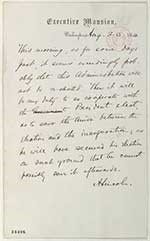 Executive Mansion,
Washington, Aug. 23, 1864.
This morning, as for some days
past, it seems exceedingly prob-
able that this Administration will
not be re-elected. Then it will
be my duty to so co-operate with
the President elect,
as to save the Union between the
election and the inauguration; as
he will have secured his election
on such ground that he can not
possibly save it afterwards.
A. Lincoln